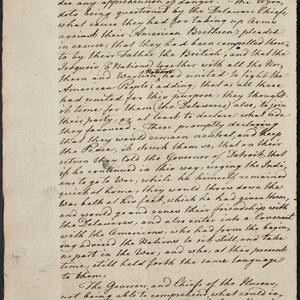 der any apprehension of danger. The Wyan,
dots being questioned by the Delaware Chiefs,
what cause they had for taking up Arms
against their American Brethren; pleaded
in excuse; that they had been compelled there,
to by their Father the British; and had the
Iroquois (6 Nations) together with all the Nor,
thern and Western Nations had united to fight the
American People; adding, that as all these
had united for this purpose; they thought
it time for them (the Delawares) also, to join
their party; or at least to declare, what side
they favoured. These promptly declaring
that they would remain neutral, and keep
the Peace, it struck them so, that on their
return they told the Governor of Detroit; that
if he continued in this way, urging the Indi,
ans to go to War, while he himself remained
quiet at home, they would throw down the
War belt at his feet, which he had given them,
and would go and renew their friendship with
the Delawares, and also enter into a Covenant
with the Americans, who had from the begin,
ing advised the Nations to sit still, and take
no part in the War, and who, at this present
time, still held forth the same language
to them.
The Governor, and Chiefs of the Hurons,
not being able to comprehend what could in,